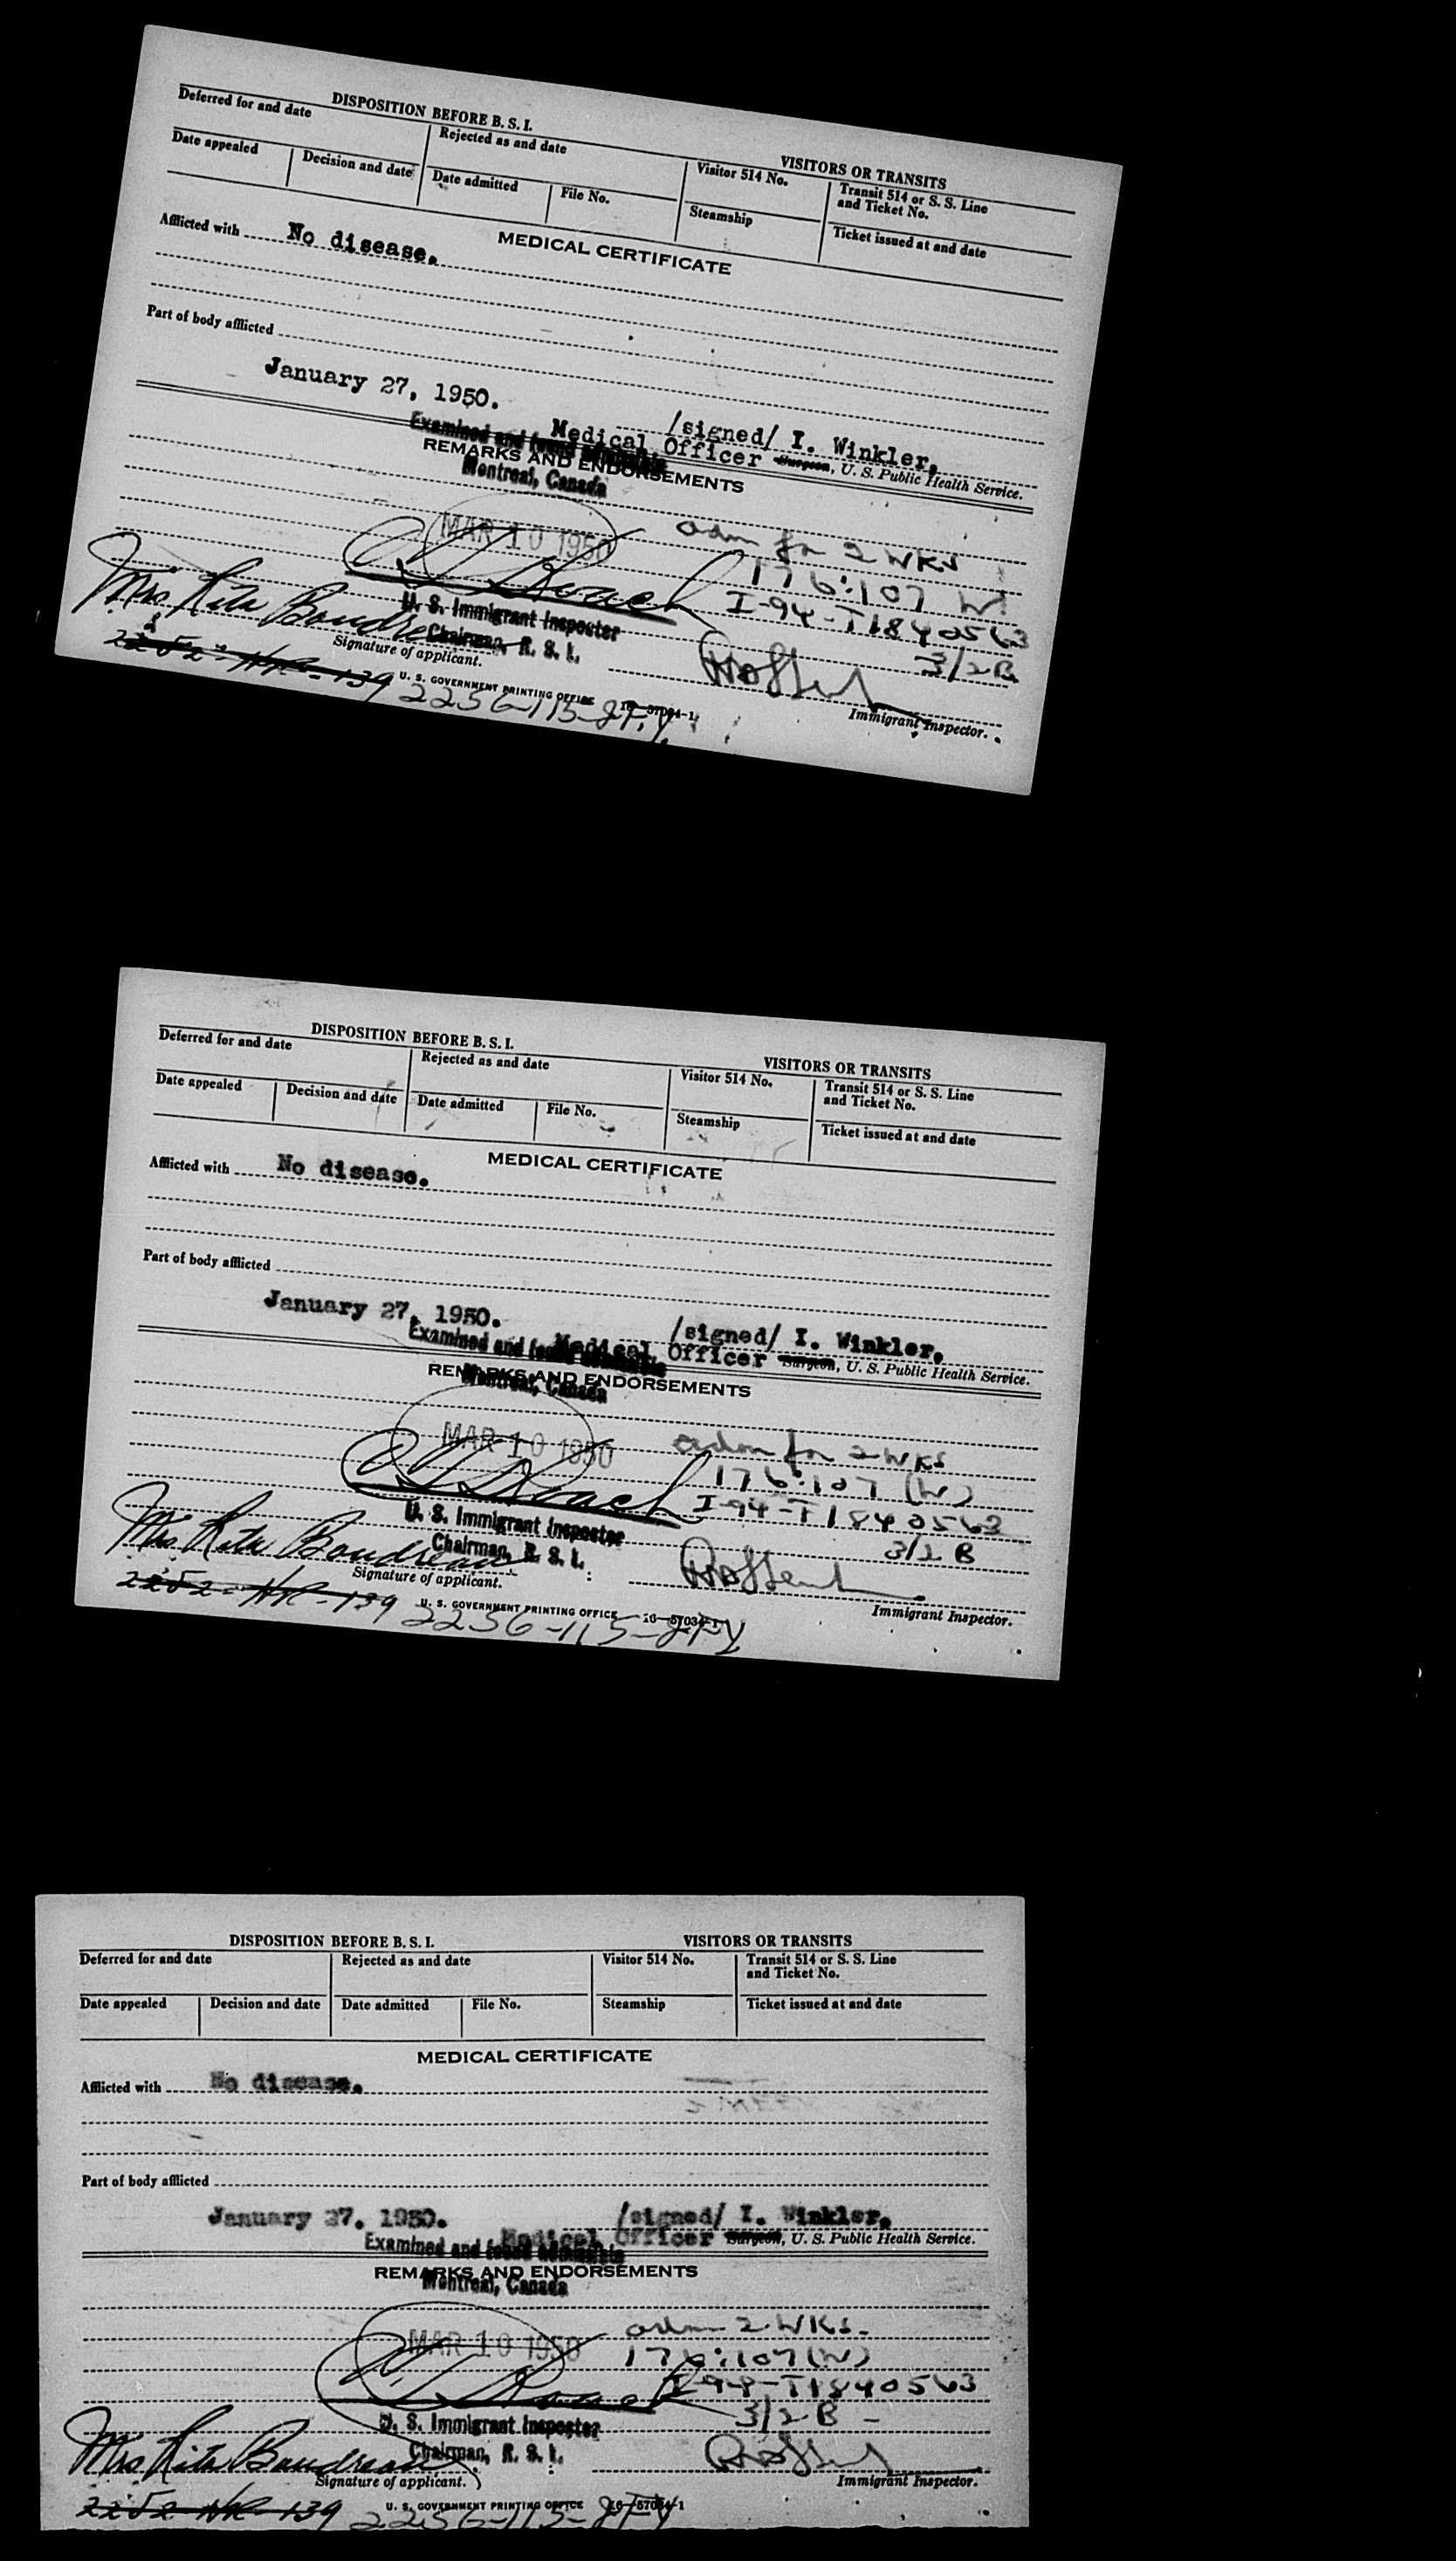 DISPOSITION BEFORE B. S. I.
VISITORS OR TRANSITS
Deferred for and date
Rejected as and date
Visitor 514 No.
Transit 514 or S. S. Line
and Ticket No.
Date appealed
Decision and date
Date admitted
File No.
Steamship
Ticket issued at and date
MEDICAL CERTIFICATE
Afflicted with No disease.
Part of body afflicted
January 27, 1950.
/signed/ I. Winkler,
Medical Officer Surgeon, U. S. Public Health Service.
Examined and found admissible
REMARKS AND ENDORSEMENTS
Montreal, Canada
MAR 10 1950
adm for 2 WKS
176:107 W
I-94-T1840563
3/2 B
U. S. Immigrant Inspector
Chairman, B. S. I.
Mrs. Rita Boudreau
Signature of applicant.
Immigrant Inspector.
2252-HR-139
U. S. GOVERNMENT PRINTING OFFICE 16—57034-1
2256-115-
DISPOSITION BEFORE B. S. I.
VISITORS OR TRANSITS
Deferred for and date
Rejected as and date
Visitor 514 No.
Transit 514 or S. S. Line
and Ticket No.
Date appealed
Decision and date
Date admitted
File No.
Steamship
Ticket issued at and date
MEDICAL CERTIFICATE
Afflicted with No disease.
Part of body afflicted
January 27, 1950.
/signed/ I. Winkler,
Medical Officer Surgeon, U. S. Public Health Service.
Examined and found admissible
REMARKS AND ENDORSEMENTS
Montreal, Canada
MAR 10 1950
adm for 2 WKS
176:107 (W)
I-94-T1840563
3/2 B
U. S. Immigrant Inspector
Chairman, B. S. I.
Mrs Rita Boudreau
Signature of applicant.
Immigrant Inspector.
2252-HR-139
U. S. GOVERNMENT PRINTING OFFICE 16—57034-1
2256-115-
DISPOSITION BEFORE B. S. I.
VISITORS OR TRANSITS
Deferred for and date
Rejected as and date
Visitor 514 No.
Transit 514 or S. S. Line
and Ticket No.
Date appealed
Decision and date
Date admitted
File No.
Steamship
Ticket issued at and date
MEDICAL CERTIFICATE
Afflicted with No disease.
Part of body afflicted
January 27, 1950.
/signed/ I. Winkler,
Medical Officer Surgeon, U. S. Public Health Service.
Examined and found admissible
REMARKS AND ENDORSEMENTS
Montreal, Canada
MAR 10 1950
adm 2 WKS.
176:107 (W)
I-94-T1840563
3/2 B -
U. S. Immigrant Inspector
Chairman, B. S. I.
Mrs Rita Boudreau
Signature of applicant.
Immigrant Inspector.
2252-HR-139
U. S. GOVERNMENT PRINTING OFFICE 16—57034-1
2256-115-